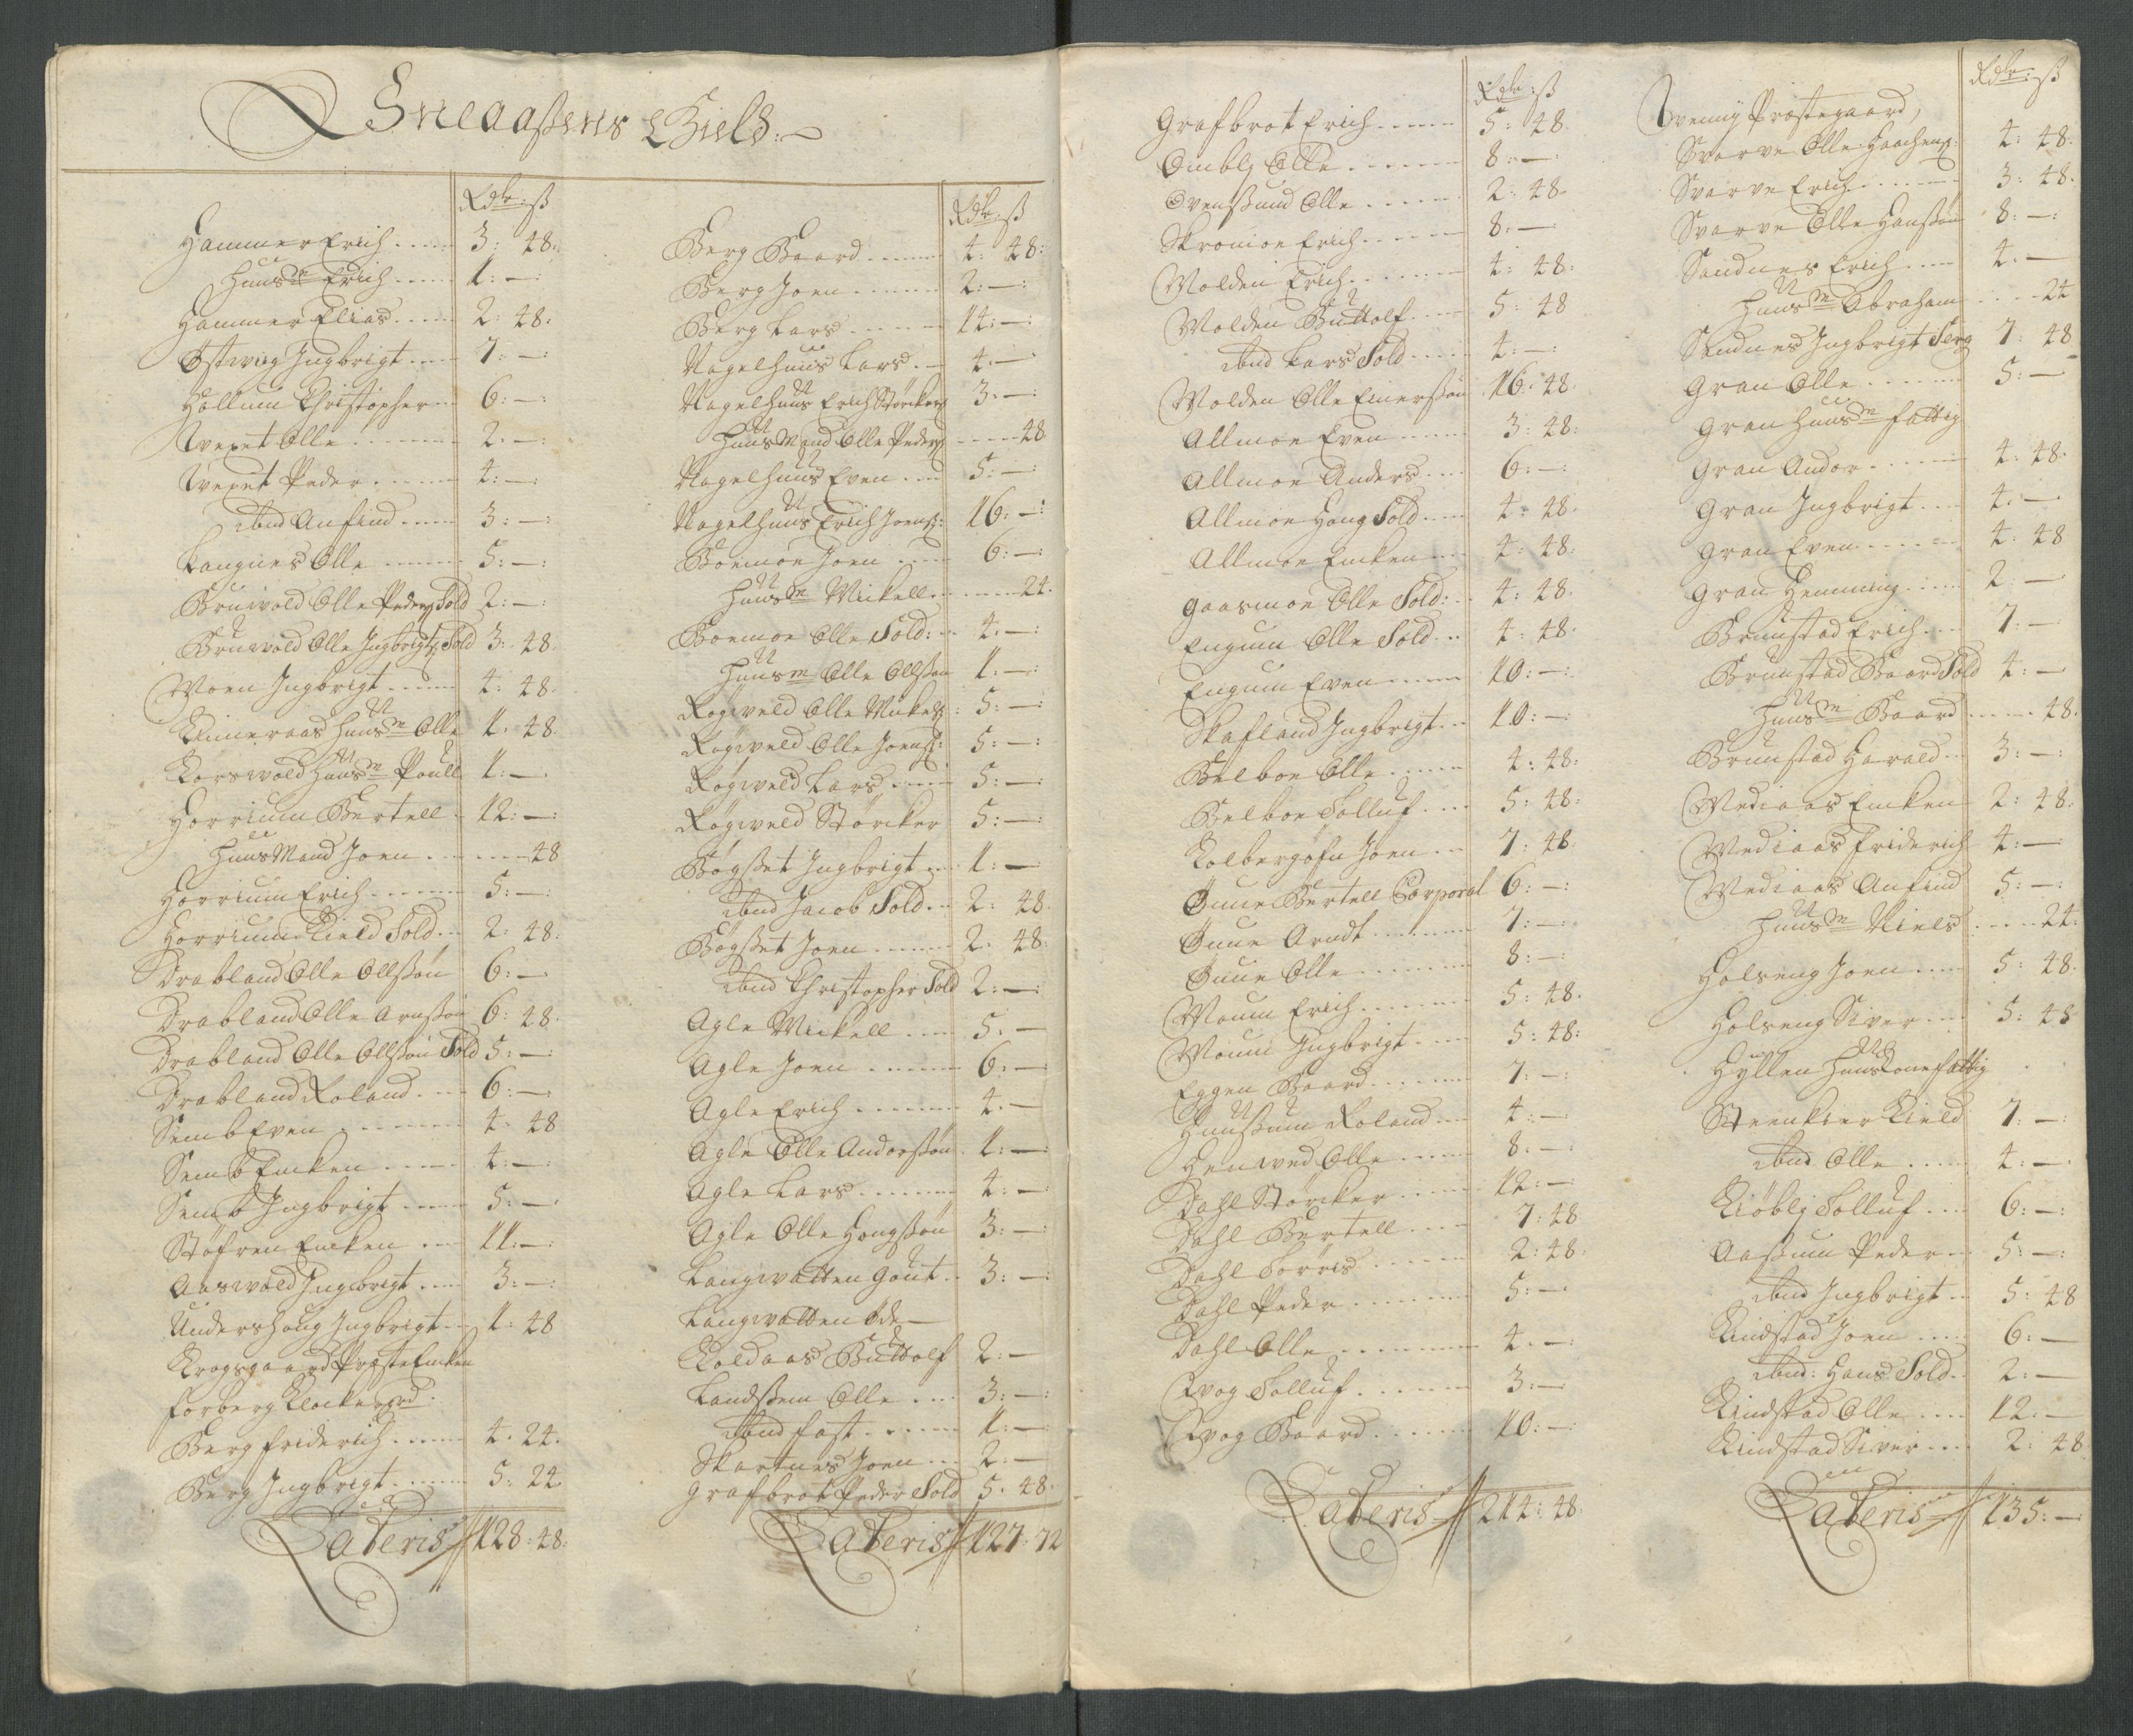 Sneaaßens Gield:
Rdlr: ß
Hammer Erich 3: 48:
Huusm Erich 1: —:
Hammer Elias 2: 48:
Østwig Ingbrigt 7: —:
Hollum Christopher 6: —:
Wexet Olle 2: —:
Wexet Peder 4: —:
ibnd Anfind 3: —:
Langnes Olle 5: —:
Bruwold Olle Peders Sold 2: —:
Bruwold Olle Ingbrigts Sold 3: 48.
Moen Ingbrigt 4: 48.
Huusm Olle 1. 48.
Korswold Huusm Poull 1: —:
Horrium Bertell 12: —:
Huusmand Joen 48
Horrium Erich 5: —:
Horrium Kield Sold 2: 48:
Drabland Olle Ollßøn 6: —
Drabland Olle Arnßøn 6: 48.
Drabland Olle Ollßøn Sold 5: —:
Drabland Roland 6: —:
Semb Even 4: 48
Semb Encken 4: —:
Semb Ingbrigt 5: —:
Støfren Encken 11: —:
Aaswold Ingbrigt 3: —:
Undershoug Ingbrigt 1: 48
Krogsgaard Præste Encken
Forberg Klocker grd:
Berg Friderich 4. 24.
Berg Ingbrigt 5: 24
Lateris 128: 48:
Rdlr: ß
Berg Baard 4: 48:
Berg Joen 2: —:
Berg Lars 14: —:
Nagelhuus Lars 4. —:
Nagelhuus Erich Størckers 3: —:
Huusmand Olle Peders 48
Nagelhuus Even 5: —:
Nagelhuus Erich Joens: 16: —:
Boemoe Joen 6: —:
Huusm Mickell 24.
Boemoe Olle Sold: 4. —:
Huusm Olle Ollßøn 1: —:
Røgweld Olle Mickels: 5: —:
Røgweld Olle Joens: 5: —:
Røgweld Lars 5: —:
Røgweld Størcker 5: —:
Bøgßet Ingbrigt 1: —
ibnd Jacob Sold 2: 48.
Bøgßet Joen 2: 48:
ibnd Christopher Sold 2: —:
Agle Mickell 5. —
Agle Joen 6: —:
Agle Erich 4. —
Agle Olle Andorßøn 1: —:
Agle Lars 4: —:
Agle Olle Hougßøn 3: —:
Langwatten Gout 3: —:
Langwatten Øde —
Koldaas Buttolf 2: —
Landßem Olle 3: —:
ibnd Fast 1: —:
Skartnes Joen 2: —
Grafbrot Peder Sold 5. 48.
Lateris 127: 72
Rdlr: ß
Grafbrot Erich 5: 48.
Ombly Olle 8: —:
Ovenßund Olle 2: 48.
Skromoe Erich 8: —:
Wolden Erich 4: 48:
Wolden Buttolf 5: 48
ibnd Lars Sold 4: —:
Wolden Olle Einerßøn 16: 48.
Allmoe Even 3: 48:
Allmoe Anders 6: —:
Allmoe Houg Sold 4: 48.
Allmoe Encken 4: 48:
Gaasmoe Olle Sold: 4: 48.
Engum Olle Sold 4: 48.
Engum Even 10: —:
Skafland Ingbrigt 10: —:
Belboe Olle 4: 48:
Belboe Tolluf 5: 48:
Kolbergøfn Joen 7: 48.
Ouue Bertell Corporal 6: —:
Ouue Arndt 7: —:
Ouue Olle 8: —:
Moum Erich 5: 48.
Moum Ingbrigt 5: 48:
Eggen Baard 7: —:
Huußum Roland 4: —:
Henwed Olle 8: —:
Dahl Størcker 12: —:
Dahl Bertell 7: 48
Dahl Torris 2: 48.
Dahl Peder 5: —:
Dahl Olle 4. —:
Qvog Tolluf 3: —:
Qvog Baard 10: —:
Lateris 214: 48:
Rdlr: ß
Wenny Prestegaard,
Svarve Olle Haachens: 4: 48.
Svarve Erich 3: 48.
Svarve Olle Hanßøn 8: —:
Sandnes Erich 4. —
Huusm Abraham 24
Sandnes Ingbrigt Serg 7: 48
Gran Olle 5: —
Gran Huusm fattig
Gran Andor 4: 48.
Gran Ingbrigt 4. —
Gran Even 4: 48
Gran Hemming 2: —
Brunstad Erich 7: —:
Brunstad Baard Sold 4: —
Huusm Baard 48.
Brunstad Harald 3: —:
Mediaas Encken 2: 48.
Mediaas Friderich 4: —:
Mediaas Anfind 5: —:
Huusm Niels 24:
Holseng Joen 5: 48.
Holseng Siver 5: 48
Hyllen Huuskone fattig
Steenkier Kield 7: —:
ibnd Olle 4: —:
Kiøbly Tolluf 6: —:
Aaßum Peder 5: —:
ibnd Ingbrigt 5: 48
Kindstad Joen 6: —
ibnd: Hans Sold 2: —
Kindstad Olle 12: —
Kindstad Siver 2: 48
Lateris 135: —: